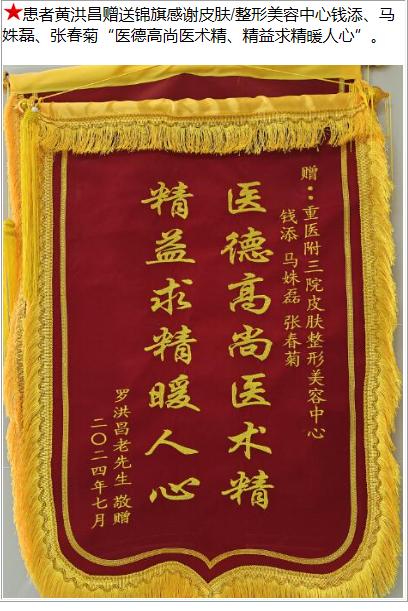 ★患者黄洪昌赠送锦旗感谢皮肤/整形美容中心钱添、马
姝磊、张春菊“医德高尚医术精、精益求精暖人心”。
赠：重医附三院皮肤整形美容中心
钱添 马姝磊 张春菊
医德高尚医术精
精益求精暖人心
罗洪昌老先生 敬赠
二〇二四年七月